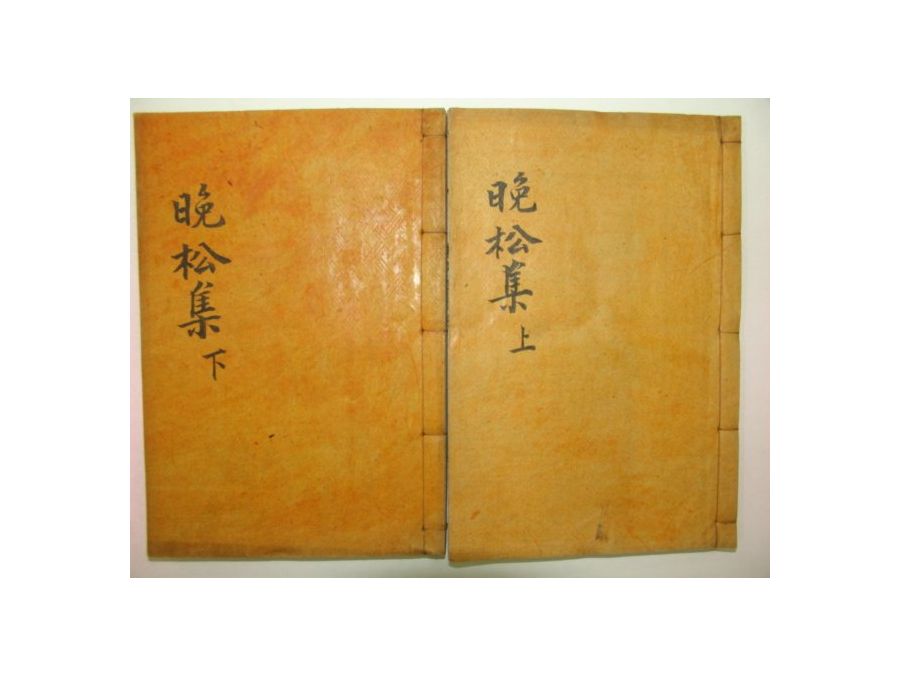 晩松集 上
晩松集 下